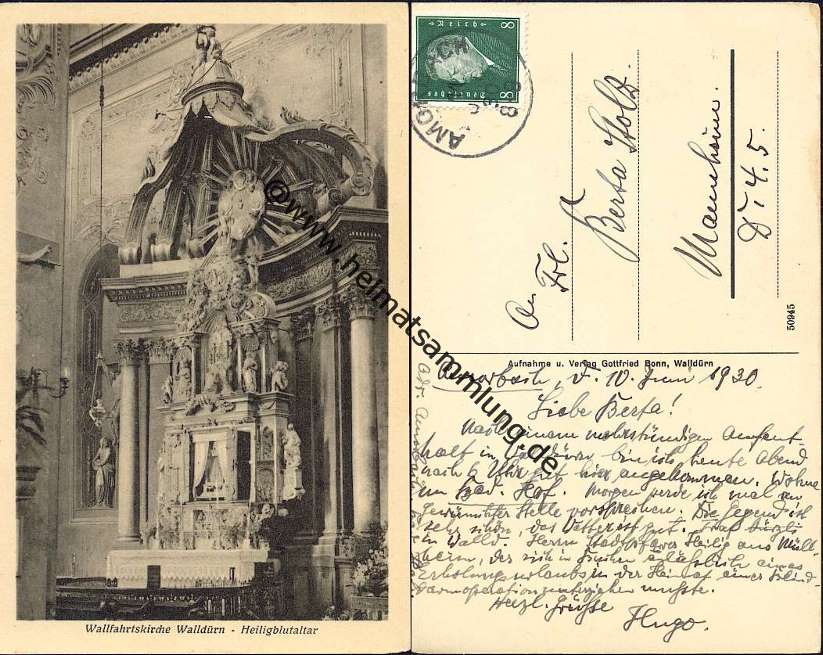 Wallfahrtskirche Walldürn - Heiligblutaltar
©www.heimatsammlung.de
8 8
Deutsches Reich
AMOR
An
Frl.
Berta Stolz.
Mannheim.
D. 4. 5.
50945
Aufnahme u. Verlag Gottfried Bonn, Walldürn
Amorbach, d. 10. Juni 1930.
Liebe Berta!
Nach einem mehrstündigen Aufent-
halt in Walldürn bin ich heute Abend
nach 6 Uhr hier angekommen. Wohne
im Bad. Hof. Morgen werde ich mal an
gewünschter Stelle vorsprechen. Die Gegend ist
sehr schön, das Wetter ist gut. Traf
in Walld. Herrn Stadtpfarrer Heilig aus
der sich in anläßlich eines
Erholungsurlaubs in der Heimat einer Blind-
darmoperation unterziehen musste.
Herzl. Grüße
Hugo.